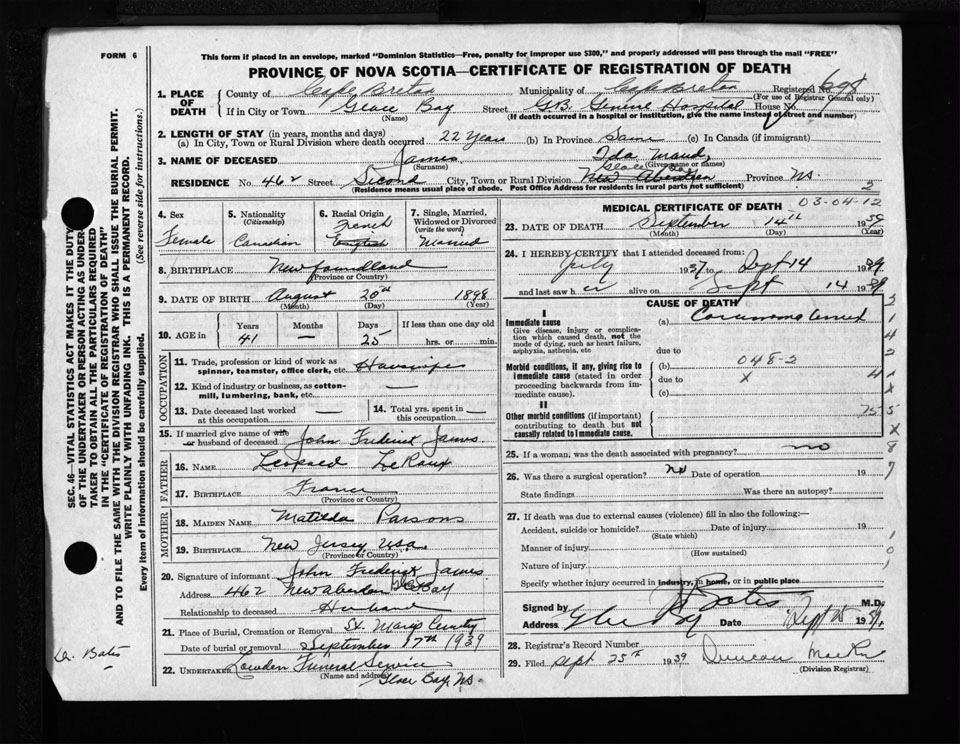 FORM 6
This form if placed in an envelope, marked "Dominion Statistics—Free, penalty for improper use $300," and properly addressed will pass through the mail "FREE"
PROVINCE OF NOVA SCOTIA—CERTIFICATE OF REGISTRATION OF DEATH
1. PLACE OF DEATH
County of Cape Breton Municipality of Cape Breton Registered No. 608
(For use of Registrar General only)
If in City or Town Glace Bay Street G.B. General Hospital House No.
(Name) (If death occurred in a hospital or institution, give the name instead of street and number)
2. LENGTH OF STAY (in years, months and days)
(a) In City, Town or Rural Division where death occurred 22 Years (b) In Province Same (c) In Canada (if immigrant)
3. NAME OF DECEASED James Ida Maud
(Surname) (Given name or names)
RESIDENCE No. 462 Street Second City, Town or Rural Division Glace Bay New Aberdeen Province N.S.
(Residence means usual place of abode. Post Office Address for residents in rural parts not sufficient)
4. Sex Female
5. Nationality (Citizenship) Canadian
6. Racial Origin French English
7. Single, Married, Widowed or Divorced (write the word) Married
8. BIRTHPLACE Newfoundland
(Province or Country)
9. DATE OF BIRTH August 20th 1898
(Month) (Day) (Year)
10. AGE in Years 41 Months — Days 25 If less than one day old hrs. or min.
OCCUPATION
11. Trade, profession or kind of work as spinner, teamster, office clerk, etc. Housewife
12. Kind of industry or business, as cotton-mill, lumbering, bank, etc. —
13. Date deceased last worked at this occupation —
14. Total yrs. spent in this occupation —
15. If married give name of wife or husband of deceased John Frederick James
FATHER
16. NAME Leopold LeRoux
17. BIRTHPLACE France
(Province or Country)
MOTHER
18. MAIDEN NAME Matilda Parsons
19. BIRTHPLACE New Jersey USA
(Province or Country)
20. Signature of informant John Frederick James
Address 462 New Aberdeen Gl Bay
Relationship to deceased Husband
21. Place of Burial, Cremation or Removal St. Marys Cemetery
Date of burial or removal September 17th 1939
22. UNDERTAKER Lowden Funeral Service
(Name and address)
Glace Bay, N.S.
MEDICAL CERTIFICATE OF DEATH
03-04-12
23. DATE OF DEATH September 14th 1939
(Month) (Day) (Year)
24. I HEREBY CERTIFY that I attended deceased from:
July 1937 to Sept 14 1939
and last saw her alive on Sept 14 1939
CAUSE OF DEATH
I
Immediate cause
Give disease, injury or complication which caused death, not the mode of dying, such as heart failure, asphyxia, asthenia, etc
(a) Carcinoma Cervix
due to
Morbid conditions, if any, giving rise to immediate cause (stated in order proceeding backwards from immediate cause).
(b) 048-2
due to X
(c)
II
Other morbid conditions (if important) contributing to death but not causally related to immediate cause.
25. If a woman, was the death associated with pregnancy? no
26. Was there a surgical operation? No Date of operation 19
State findings Was there an autopsy?
27. If death was due to external causes (violence) fill in also the following:—
Accident, suicide or homicide? Date of injury 19
(State which)
Manner of injury
(How sustained)
Nature of injury
Specify whether injury occurred in industry, in home, or in public place
Signed by Bates M.D.
Address Glace Bay Date Sept 25 1939
28. Registrar's Record Number
29. Filed Sept 25th 1939 Duncan
(Division Registrar)
SEC. 46—VITAL STATISTICS ACT MAKES IT THE DUTY
OF THE UNDERTAKER OR PERSON ACTING AS UNDER
TAKER TO OBTAIN ALL THE PARTICULARS REQUIRED
IN THE "CERTIFICATE OF REGISTRATION OF DEATH"
AND TO FILE THE SAME WITH THE DIVISION REGISTRAR WHO SHALL ISSUE THE BURIAL PERMIT.
WRITE PLAINLY WITH UNFADING INK. THIS IS A PERMANENT RECORD.
Every item of information should be carefully supplied. (See reverse side for instructions.)
Bates